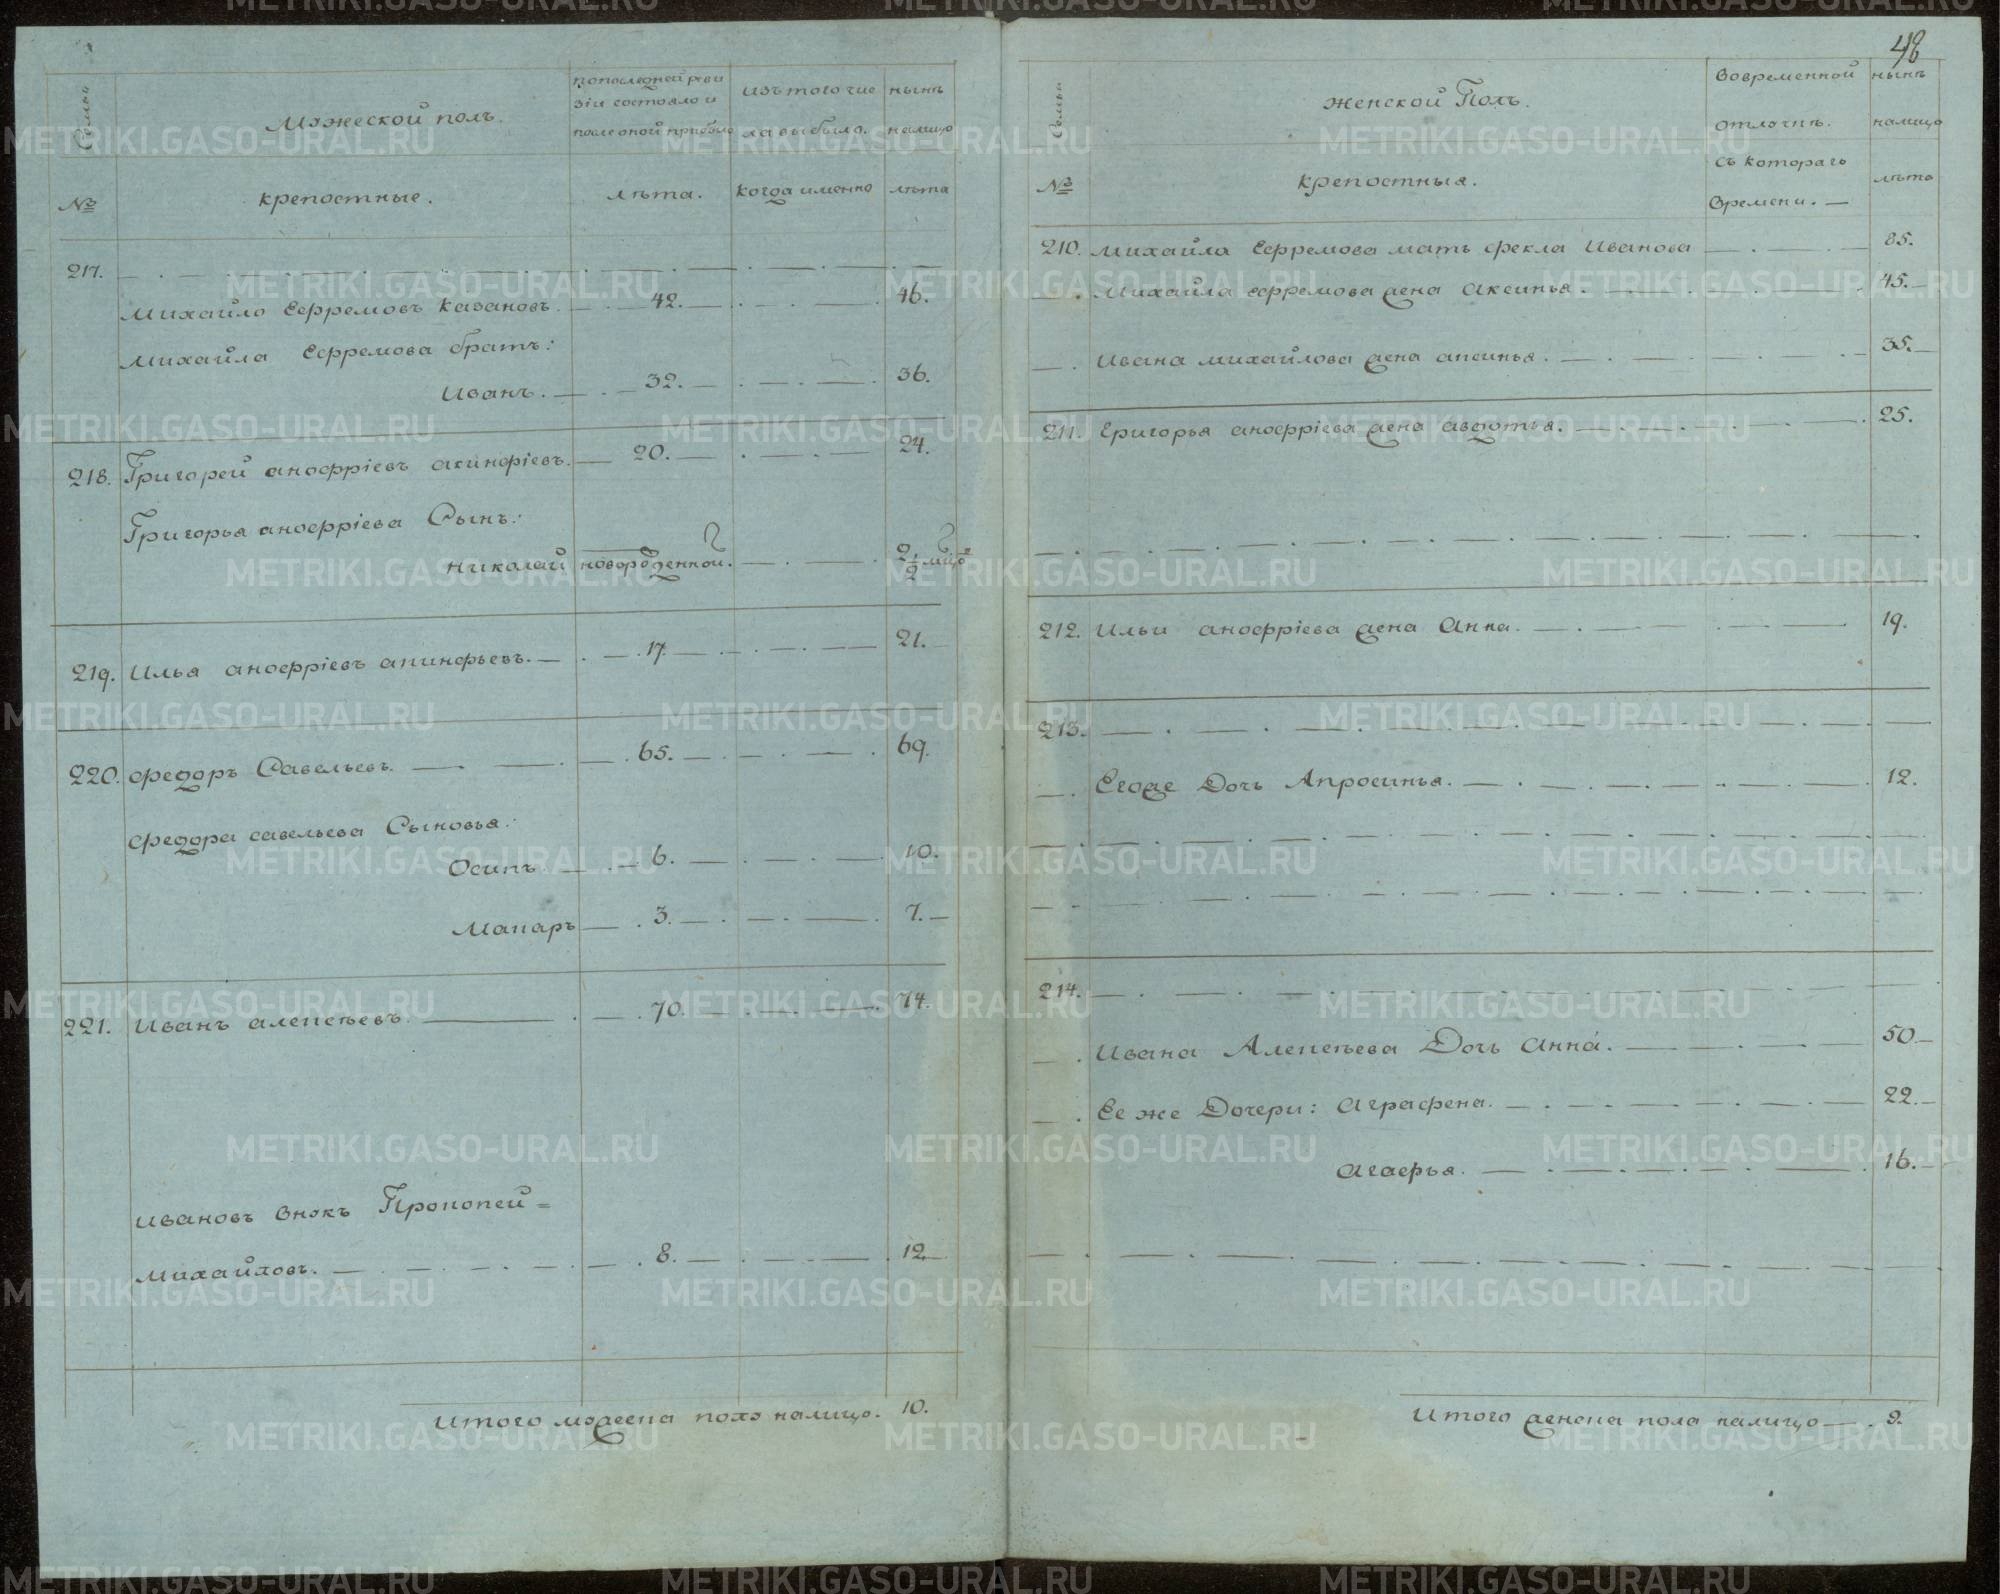 48
Семьи
Мужеской полъ.
по последней реви
зіи состояло и
после оной прибыло
изъ того чис
ла выбыло.
нынѣ
налицо
№
крепостные.
лѣта.
когда именно
лѣта
217. — . — . — . —
Михайло Ефремовъ Казановъ. — . — 42. — . — . — 46.
Михайла Ефремова братъ:
Иванъ. — . — 32. — . — . — 36.
218. Григорей Анофріевъ Акинфіевъ. — 20. — . — . — 24.
Григорья Анофріева Сынъ:
Николай новорожденной. — . — . 2 1/2 мцо
219. Илья Анофріевъ Акинфьевъ. — . — 17. — . — . — 21. —
220. Федоръ Савельевъ. — . — 65. — . — . — 69.
Федора Савельева Сыновья:
Осипъ — . — 6. — . — . — 10.
Макаръ — . 3. — . — . — 7. —
221. Иванъ Алексѣевъ. — . — 70. — . — . — 74.
Ивановъ внукъ Прокопей =
Михайловъ. — . — . — 8. — . — . — 12.
Итого мужеска полу налицо. 10.
Семьи
Женской Полъ.
вовременной
отлучкѣ.
нынѣ
налицо
№
крепостныя.
съ котораго
времени. —
лѣта
210. Михайла Ефремова мать Фекла Иванова — . — 85.
— . Михайла Ефремова жена Аксинья. — . — . — 45. —
— . Ивана Михайлова жена Аксинья. — . — . — 35. —
211. Григорья Анофріева жена Авдотья. — . — . — 25.
— . — . — . — . —
212. Ильи Анофріева жена Анна. — . — . — 19.
213. — . — . — . — . —
— . Егоже Дочь Апросинья. — . — . — 12.
— . — . — . — . —
— . — . — . — . —
214. — . — . — . — . —
— . Ивана Алексѣева Дочь Анна. — . — . — 50. —
— . Ее же Дочери: Аграфена. — . — . — 22. —
Агафья. — . — . — 16. —
— . — . — . — . —
Итого женска пола налицо — . 9.
METRIKI.GASO-URAL.RU